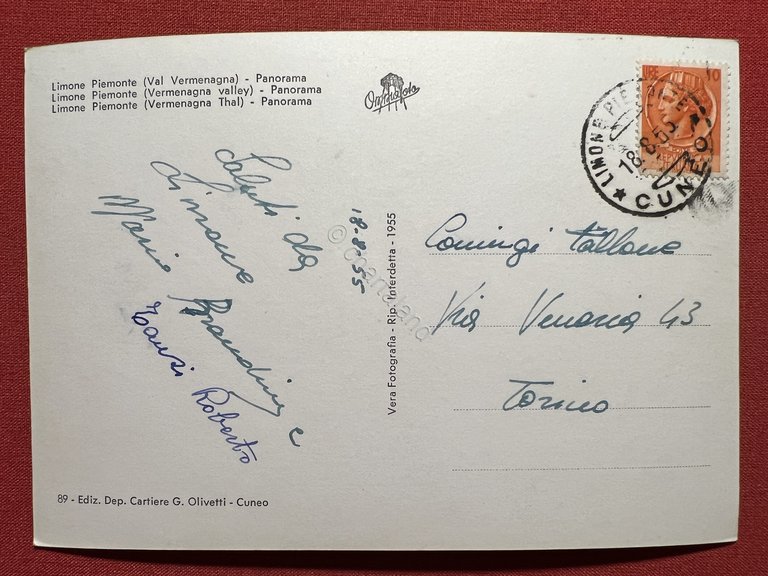 Limone Piemonte (Val Vermenagna) - Panorama
Limone Piemonte (Vermenagna valley) - Panorama
Limone Piemonte (Vermenagna Thal) - Panorama
LIRE 10
LIMONE PIEMONTE
18-8-55
★ CUNEO
Saluti da
Limone
Mario
e
Roberto
18-8-55
© cartoland
Vera Fotografia - Rip. Interdetta - 1955
Coniugi Fallone
Via Venaria 43
Torino
89 - Ediz. Dep. Cartiere G. Olivetti - Cuneo